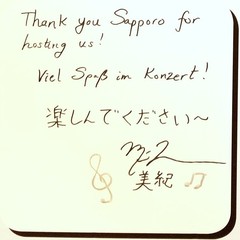 Thank you Sapporo for
hosting us!
Viel Spaß im Konzert!
楽しんでください〜
美紀